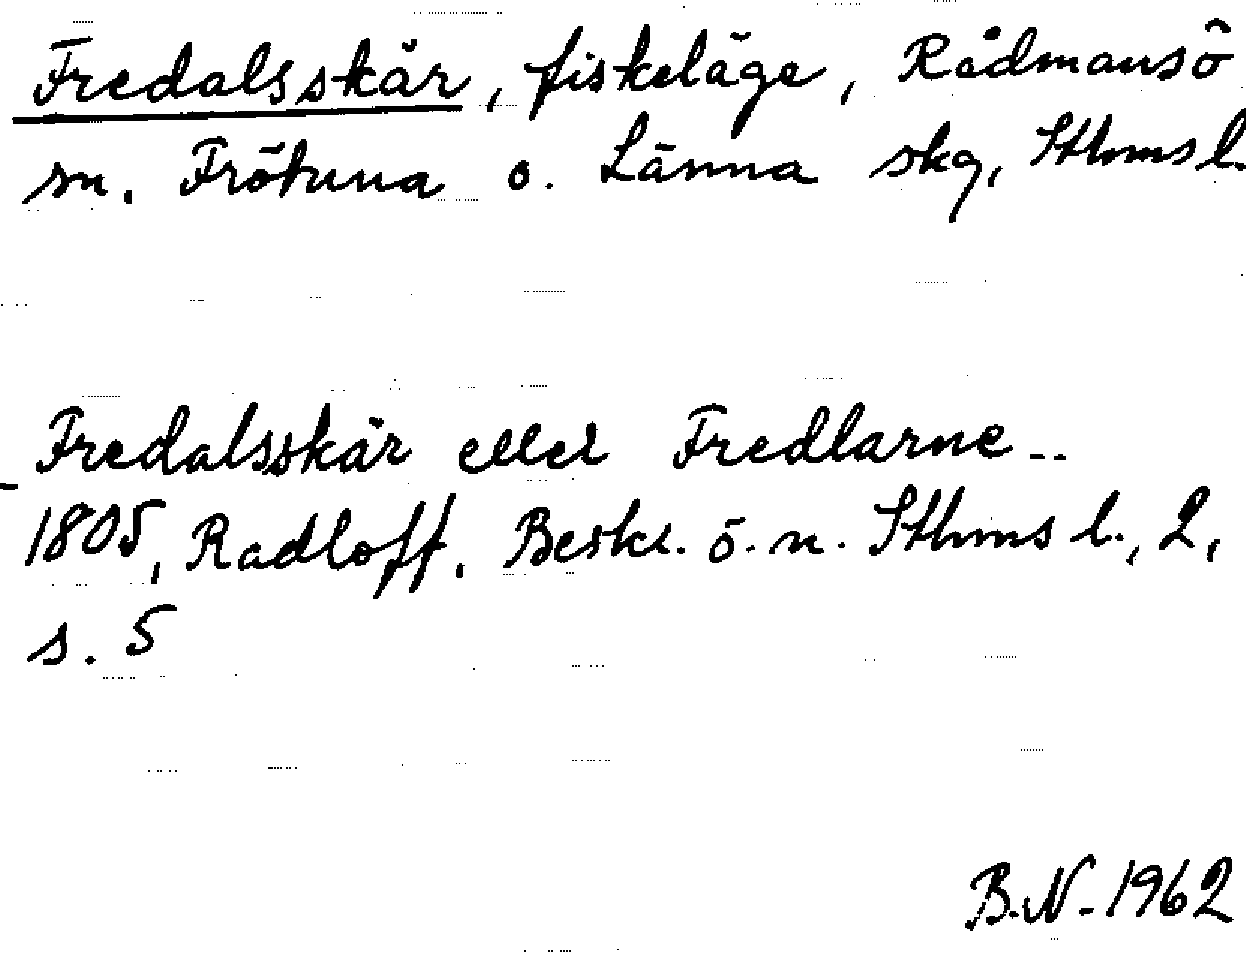 Fredalsskär, fiskeläge, Rådmansö
sn. Frötuna o. Länna skg, Sthms l.
Fredalsskär eller Fredlarne --
1805, Radloff. Beskr. ö. n. Sthms l., 2,
s. 5
B.N. 1962